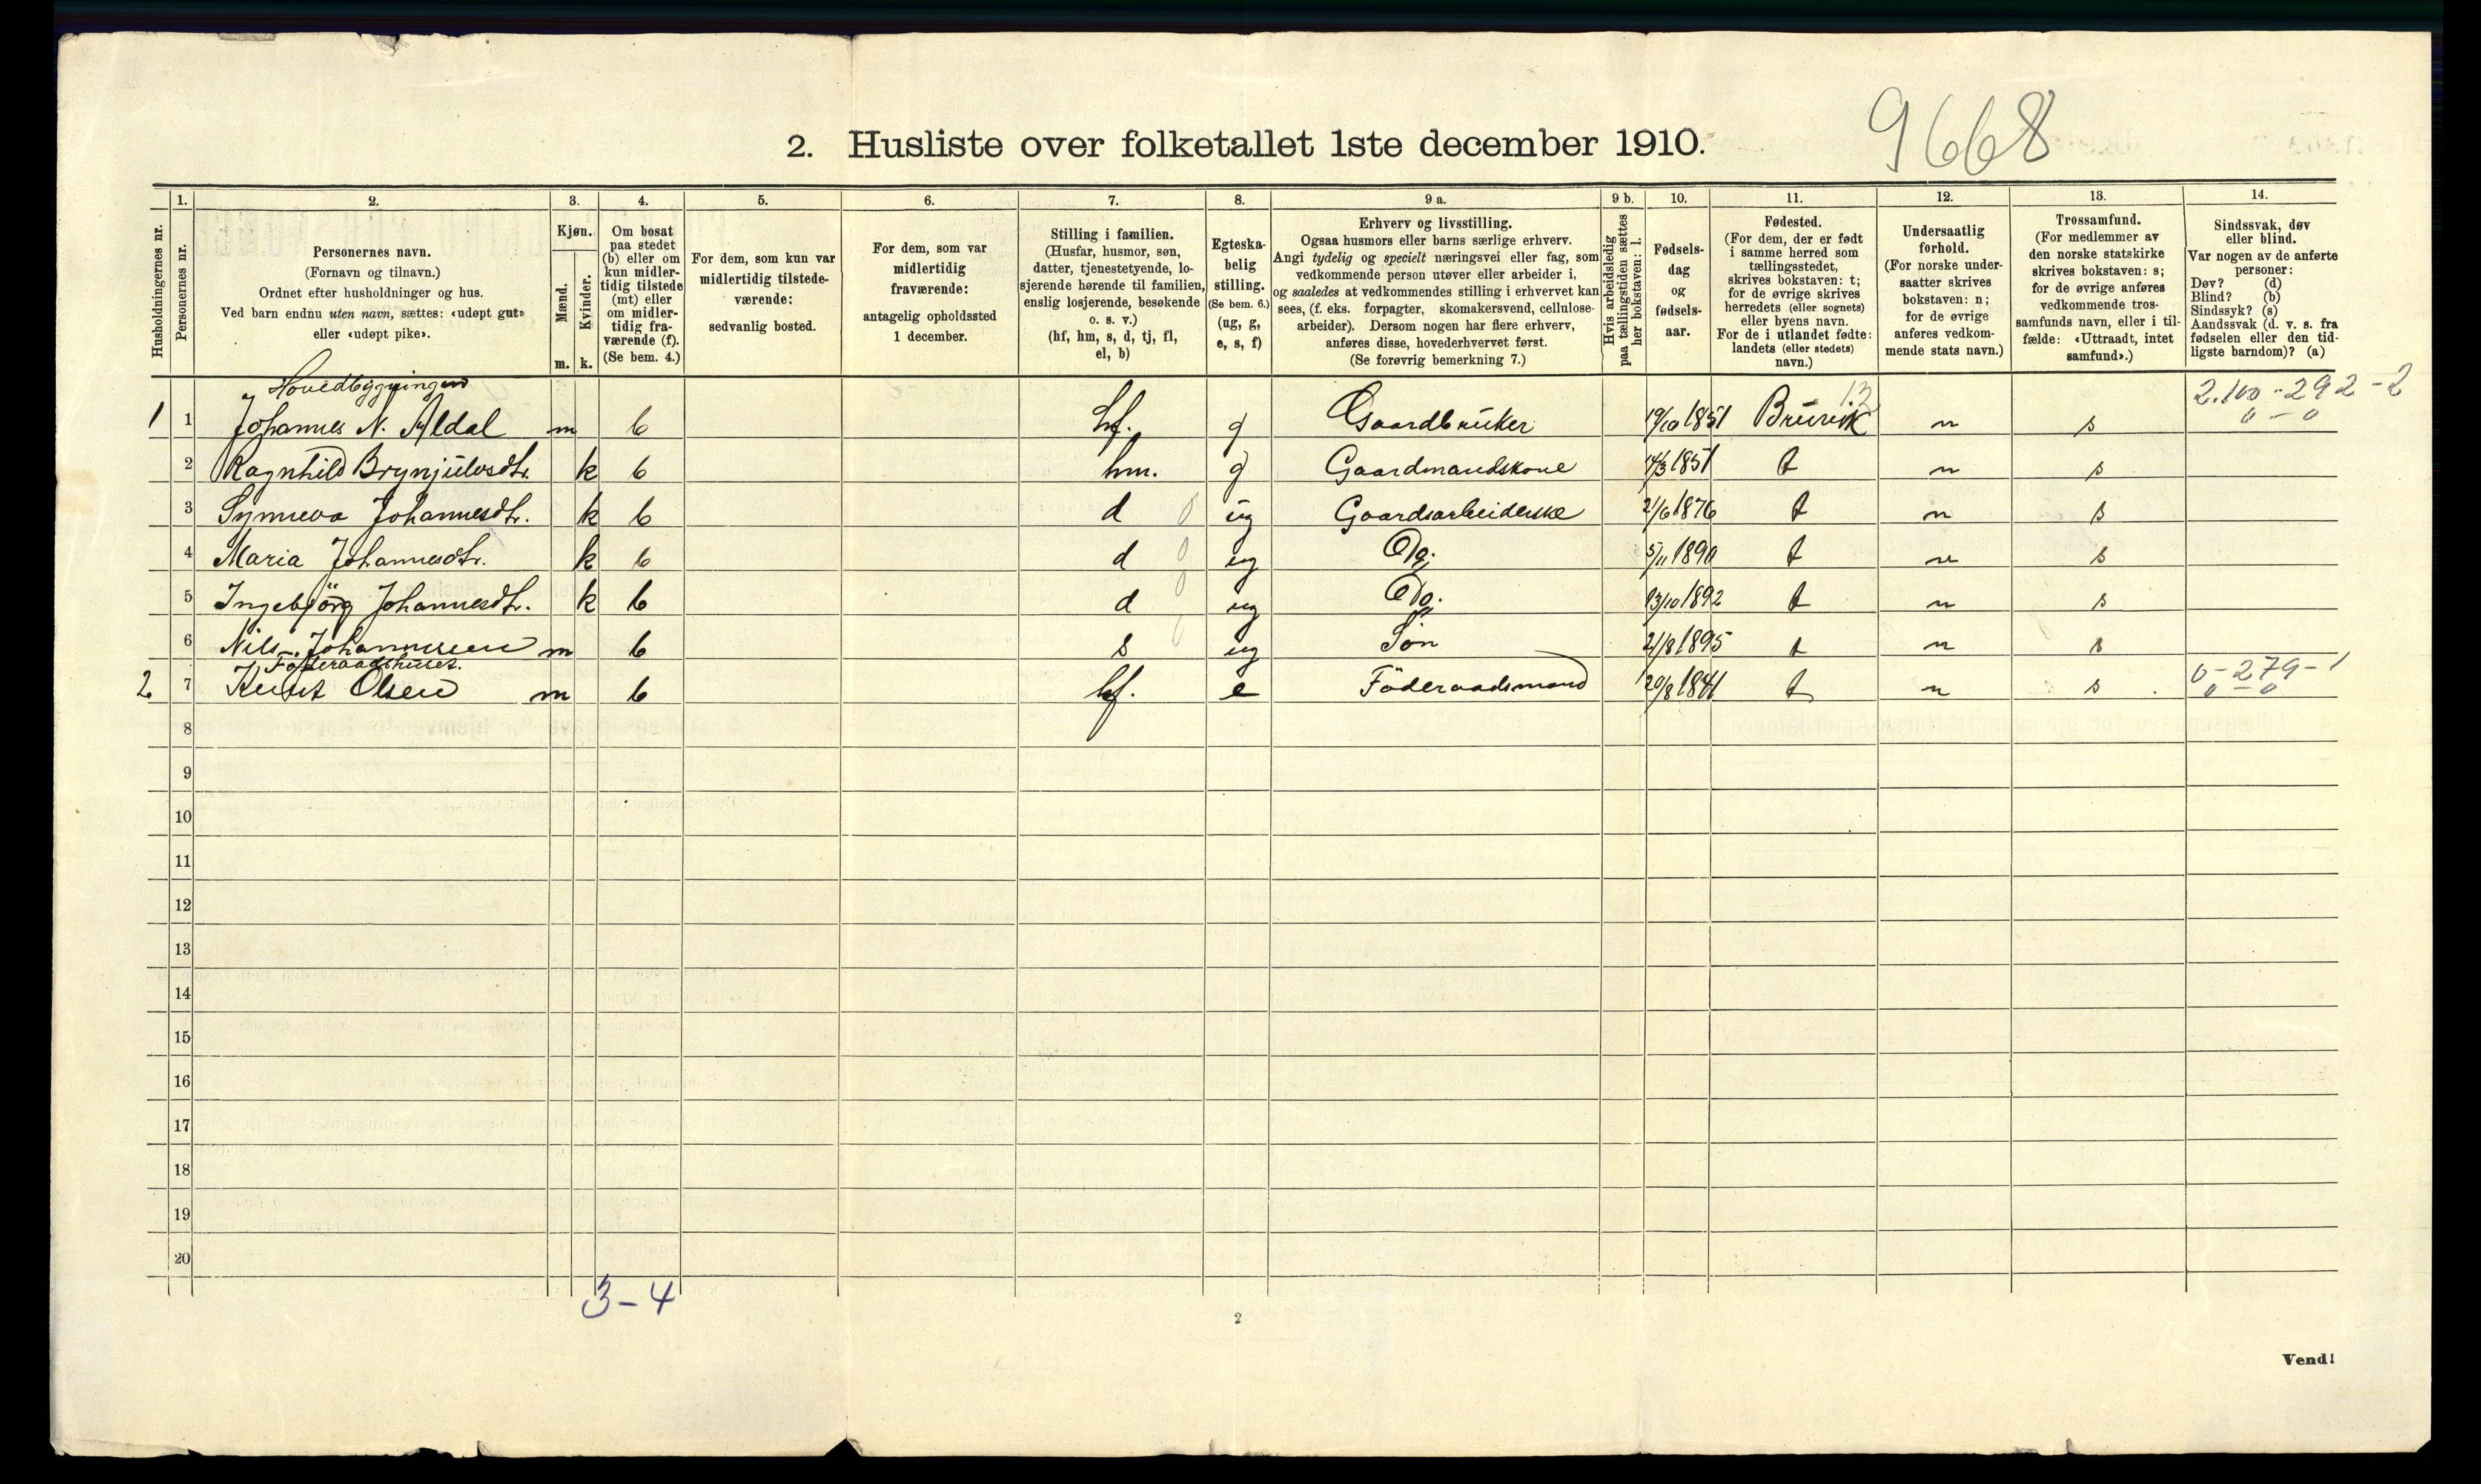 9668
2. Husliste over folketallet 1ste december 1910.
Husholdningernes nr.
1.
Personernes nr.
2.
Personernes navn.
(Fornavn og tilnavn.)
Ordnet efter husholdninger og hus.
Ved barn endnu uten navn, sættes: «udøpt gut»
eller «udøpt pike».
3.
Kjøn.
Mænd.
Kvinder.
m. k.
4.
Om bosat
paa stedet
(b) eller om
kun midler-
tidig tilstede
(mt) eller
om midler-
tidig fra-
værende (f).
(Se bem. 4.)
5.
For dem, som kun var
midlertidig tilstede-
værende:
sedvanlig bosted.
6.
For dem, som var
midlertidig
fraværende:
antagelig opholdssted
1 december.
7.
Stilling i familien.
(Husfar, husmor, søn,
datter, tjenestetyende, lo-
sjerende hørende til familien,
enslig losjerende, besøkende
o. s. v.)
(hf, hm, s, d, tj, fl,
el, b)
8.
Egteska-
belig
stilling.
(Se bem. 6.)
(ug, g,
e, s, f)
9 a.
Erhverv og livsstilling.
Ogsaa husmors eller barns særlige erhverv.
Angi tydelig og specielt næringsvei eller fag, som
vedkommende person utøver eller arbeider i,
og saaledes at vedkommendes stilling i erhvervet kan
sees, (f. eks. forpagter, skomakersvend, cellulose-
arbeider). Dersom nogen har flere erhverv,
anføres disse, hovederhvervet først.
(Se forøvrig bemerkning 7.)
9 b.
Hvis arbeidsledig
paa tællingstiden sættes
her bokstaven: l.
10.
Fødsels-
dag
og
fødsels-
aar.
11.
Fødested.
(For dem, der er født
i samme herred som
tællingsstedet,
skrives bokstaven: t;
for de øvrige skrives
herredets (eller sognets)
eller byens navn.
For de i utlandet fødte:
landets (eller stedets)
navn.)
12.
Undersaatlig
forhold.
(For norske under-
saatter skrives
bokstaven: n;
for de øvrige
anføres vedkom-
mende stats navn.)
13.
Trossamfund.
(For medlemmer av
den norske statskirke
skrives bokstaven: s;
for de øvrige anføres
vedkommende tros-
samfunds navn, eller i til-
fælde: «Uttraadt, intet
samfund».)
14.
Sindssvak, døv
eller blind.
Var nogen av de anførte
personer:
Døv? (d)
Blind? (b)
Sindssyk? (s)
Aandssvak (d. v. s. fra
fødselen eller den tid-
ligste barndom)? (a)
Hovedbygningen
1 1 Johannes N. Aldal m b hf. g Gaardbruker 19/10 1851 Bruvik 13 n s 2.100-292-2
0-0
2 Ragnhild Brynjulvsdtr. k b hm. g Gaardmandskone 14/3 1851 t n s
3 Synneva Johannesdtr. k b d 0 ug Gaardsarbeiderske 21/6 1876 t n s
4 Maria Johannesdtr. k b d 0 ug Do. 5/11 1890 t n s
5 Ingebjörg Johannesdtr. k b d 0 ug Do. 13/10 1892 t n s
6 Nils Johannesen m b s 0 ug Søn 21/8 1895 t n s
Føderaadshuset.
2 7 Knut Olsen m b hf. e Föderaadsmand 20/8 1841 t n s 0-279-1
0-0
8
9
10
11
12
13
14
15
16
17
18
19
20
3-4
2
Vend!